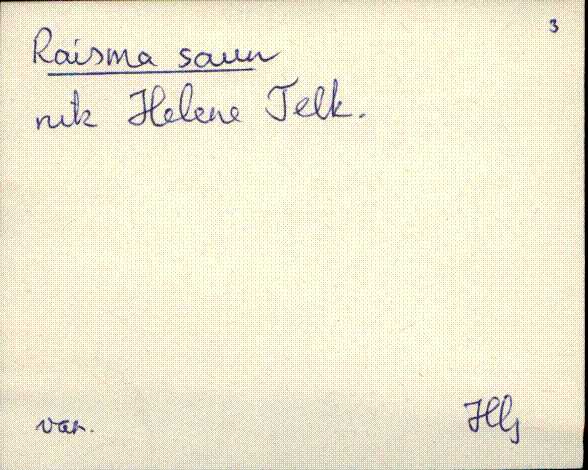 3
Raisma saun
nrk Helene Telk.
var.
Hlj